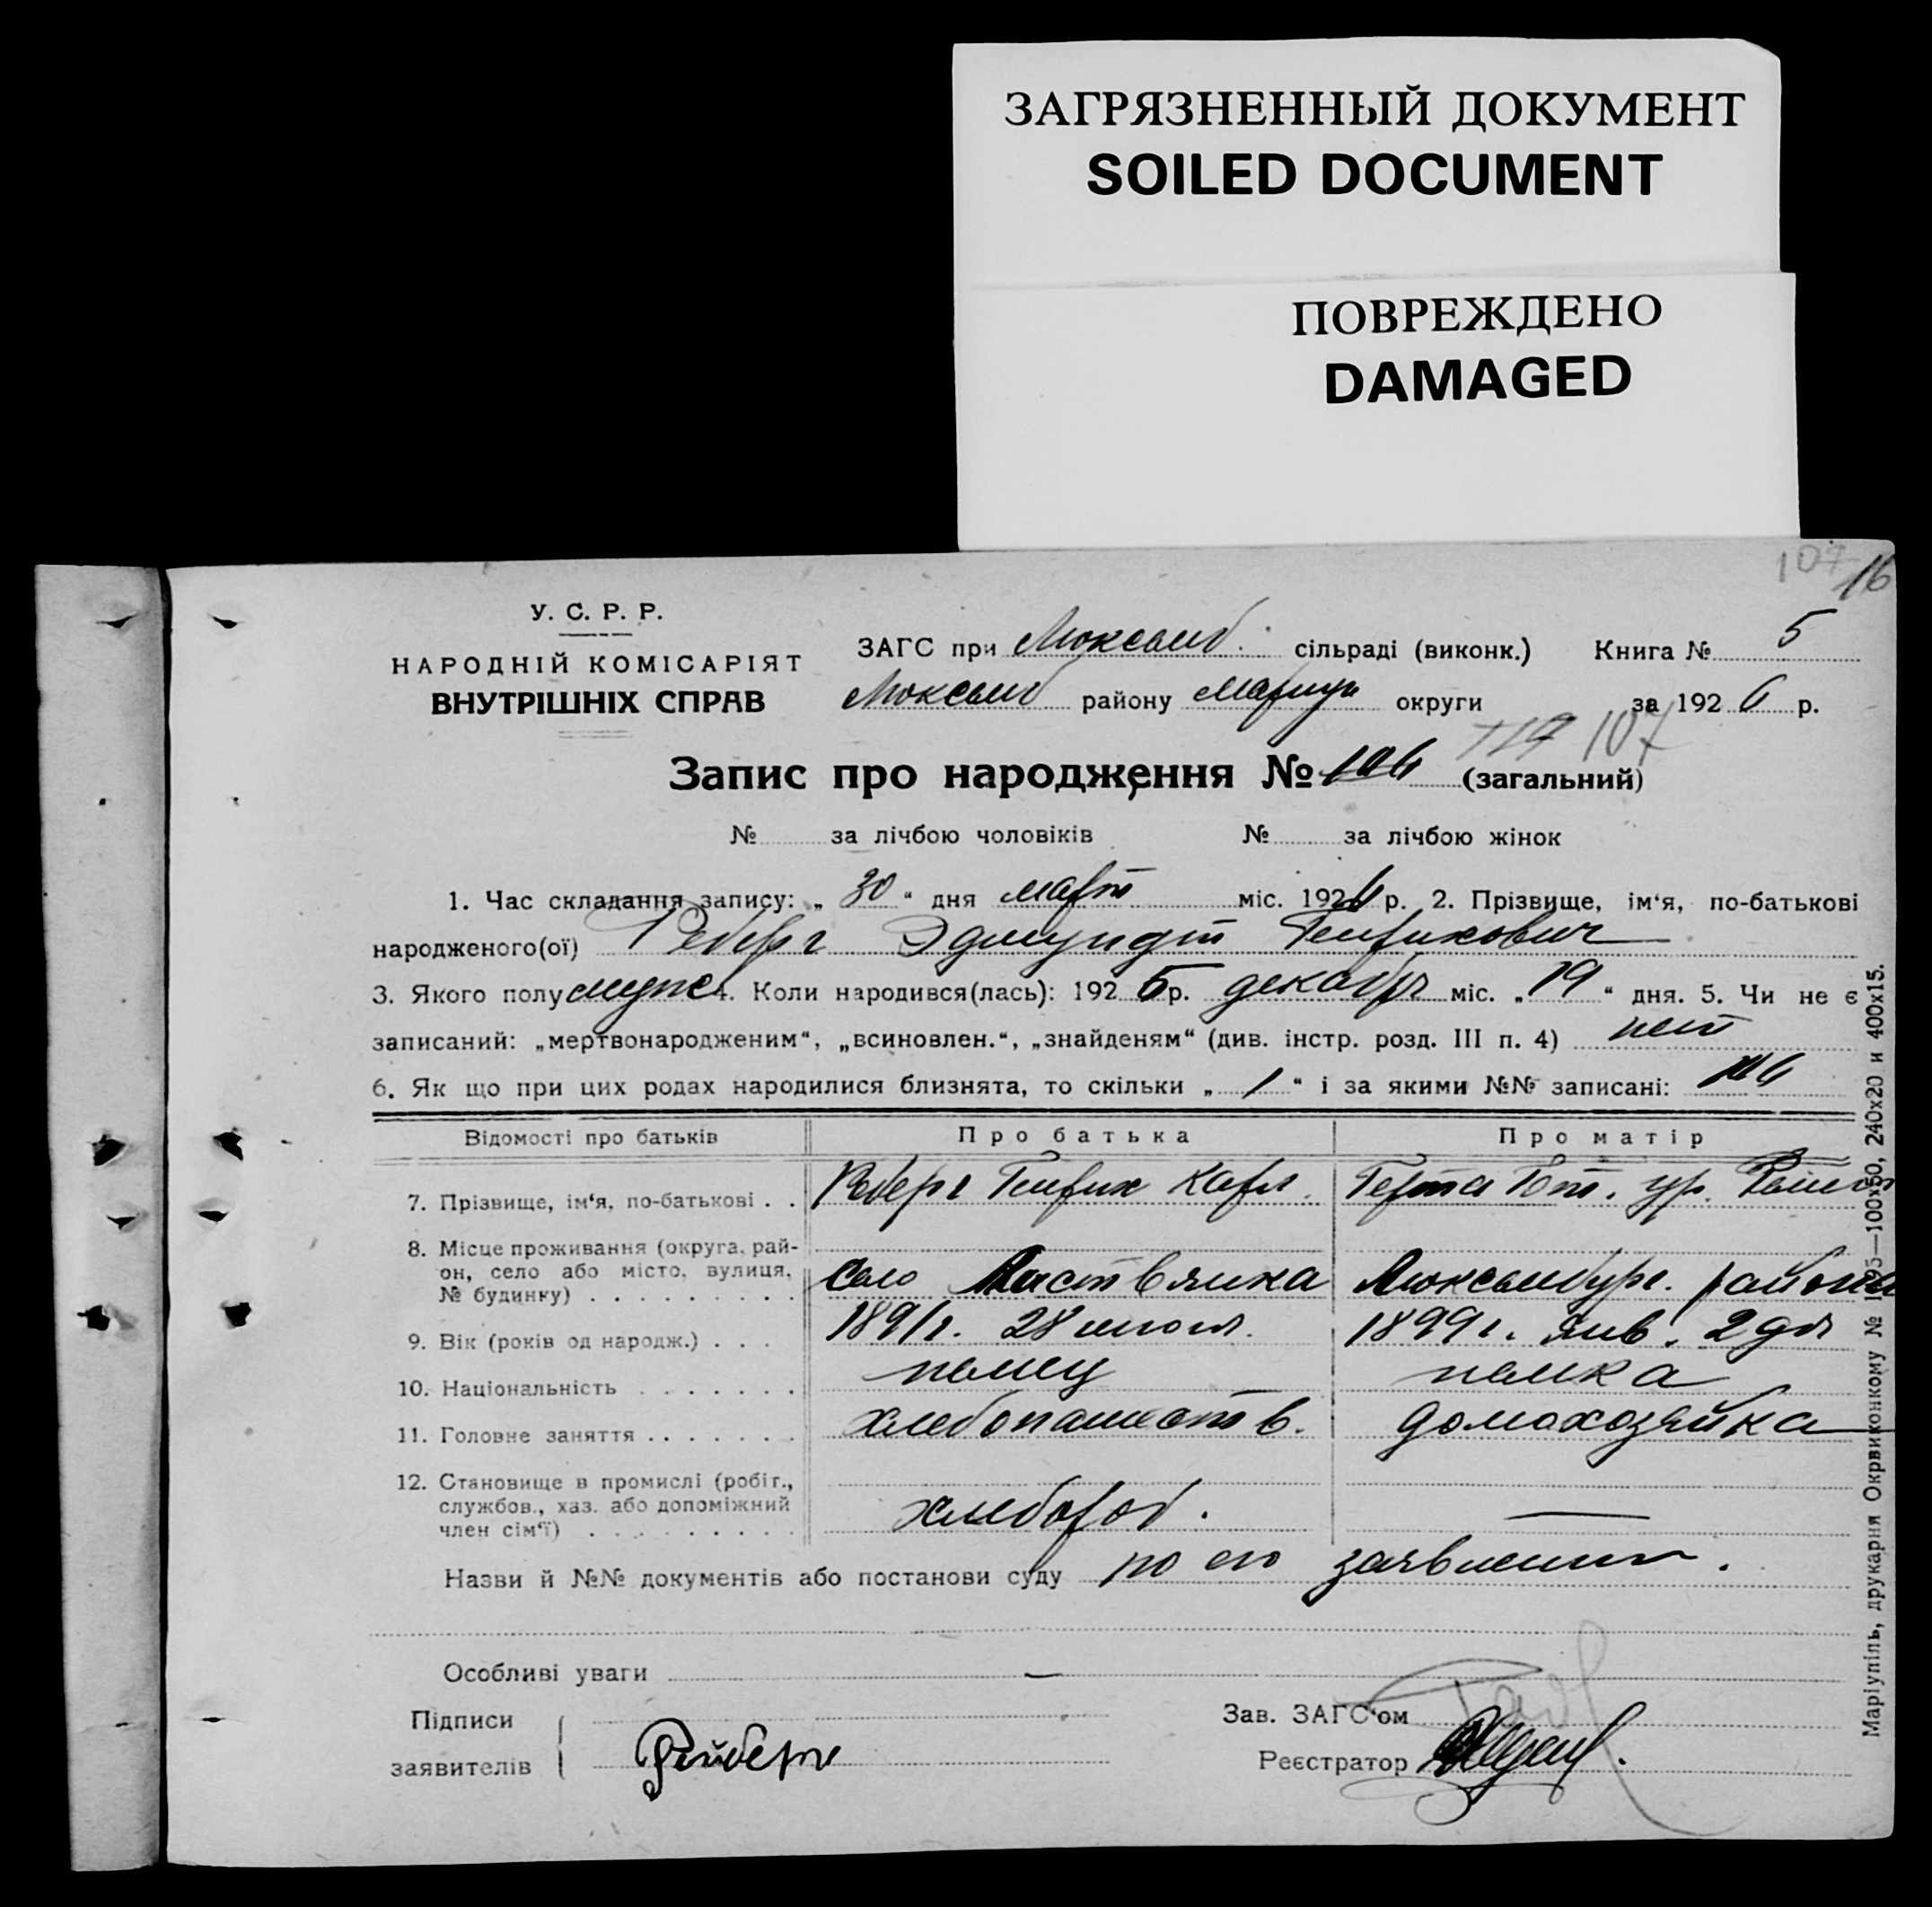 ЗАГРЯЗНЕННЫЙ ДОКУМЕНТ
SOILED DOCUMENT
ПОВРЕЖДЕНО
DAMAGED
107 16
У. С. Р. Р.
НАРОДНІЙ КОМІСАРІЯТ
ВНУТРІШНІХ СПРАВ
ЗАГС при Люксемб. сільраді (виконк.) Книга № 5
Люксемб району Мариуп округи за 1926 р.
Запис про народження № 106 107 (загальний)
№ за лічбою чоловіків № за лічбою жінок
1. Час складання запису: „ 30 “ дня март міс. 1926 р. 2. Прізвище, ім‘я, по-батькові
народженого(ої) Реберг Эдмундт Генрихович
3. Якого полу муже 4. Коли народився(лась): 1925 р. декабр міс. „ 19 “ дня. 5. Чи не є
записаний: „мертвонародженим“, „всиновлен.“, „знайденям“ (див. інстр. розд. III п. 4) нет
6. Як що при цих родах народилися близнята, то скільки „ 1 “ і за якими №№ записані: 106
Відомості про батьків Про батька Про матір
7. Прізвище, ім‘я, по-батькові . . Реберг Генрих Карл. Герта Гот. ур.
8. Місце проживання (округа, рай-
он, село або місто, вулиця,
№ будинку) Село Листвянка Люксембург. района
9. Вік (років од народж.) 1891 г. 28 июля. 1899 г. Янв. 2 дня
10. Національність немец немка
11. Головне заняття хлебопашеств. домохозяйка
12. Становище в промислі (робіт.,
службов., хаз. або допоміжний
член сім‘ї) хлебороб. —
Назви й №№ документів або постанови суду по его заявлении.
Особливі уваги —
Підписи
заявителів Рейберг
Зав. ЗАГС‘ом
Реєстратор
Маріупіль, друкарня Окрвиконкому № 195—100х50, 240х20 и 400х15.